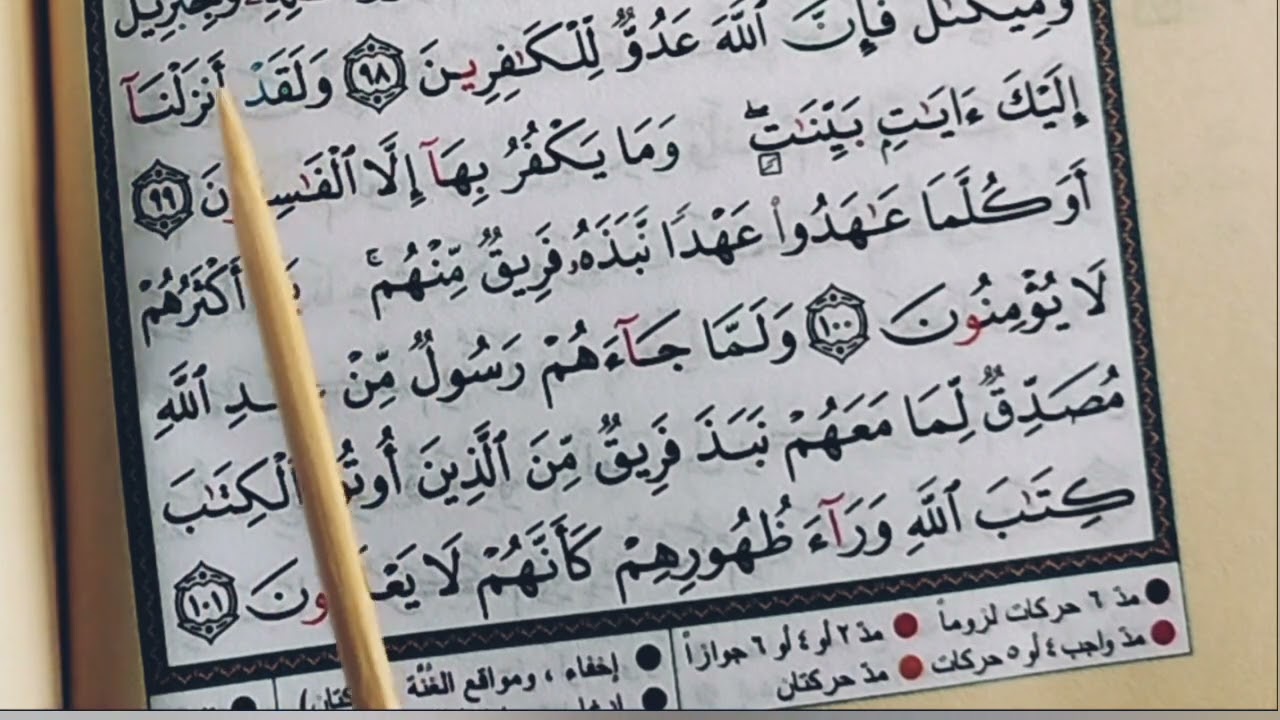 وَمِيكَىٰلَ فَإِنَّ ٱللَّهَ عَدُوٌّ لِّلْكَـٰفِرِينَ ٩٨ وَلَقَدْ أَنزَلْنَآ
إِلَيْكَ ءَايَـٰتٍۭ بَيِّنَـٰتٍۖ وَمَا يَكْفُرُ بِهَآ إِلَّا ٱلْفَـٰسِـ ـونَ ٩٩
أَوَكُلَّمَا عَـٰهَدُوا۟ عَهْدًا نَّبَذَهُۥ فَرِيقٌ مِّنْهُمۚ أَكْثَرُهُمْ
لَا يُؤْمِنُونَ ١٠٠ وَلَمَّا جَآءَهُمْ رَسُولٌ مِّنْ ٱللَّهِ
مُصَدِّقٌ لِّمَا مَعَهُمْ نَبَذَ فَرِيقٌ مِّنَ ٱلَّذِينَ أُوتُوا۟ ٱلْكِتَـٰبَ
كِتَـٰبَ ٱللَّهِ وَرَآءَ ظُهُورِهِمْ كَأَنَّهُمْ لَا ١٠١
مدّ ٦ حركات لزوماً مدّ ٢ أو ٤ أو ٦ جوازاً
مدّ واجب ٤ أو ٥ حركات مدّ حركتان
إخفاء ، ومواقع الغُنَّة